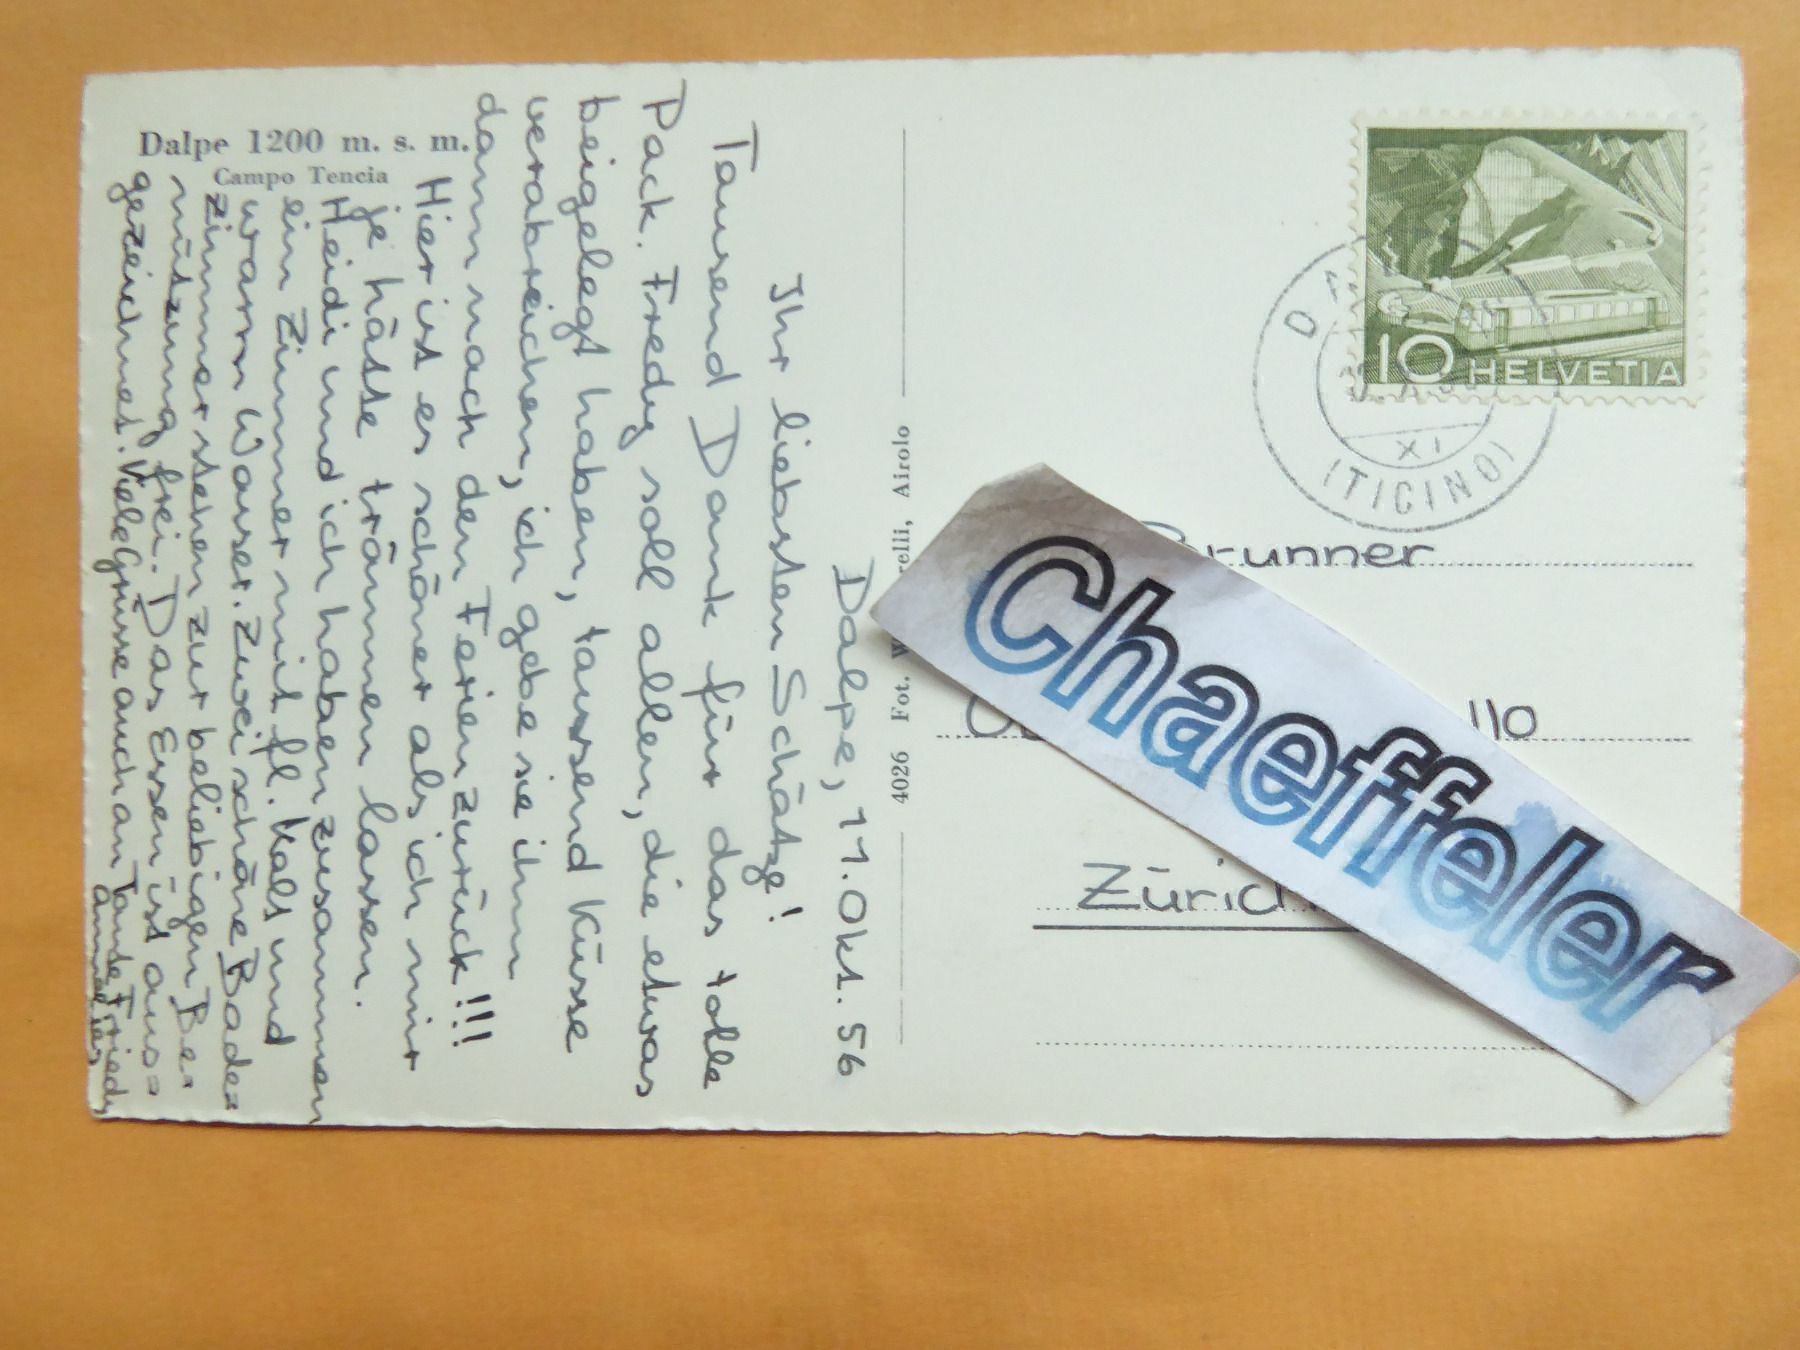 Dalpe 1200 m. s. m.
Campo Tencia
Dalpe, 11. Okt. 56
Ihr liebsten Schätze!
Tausend Dank für das tolle
Pack. Fredy soll allen, die etwas
beigelegt haben, tausend Küsse
verabreichen, ich gebe sie ihm
dann nach den Ferien zurück!!!
Hier ist es schöner als ich mir
je hätte träumen lassen.
Heidi und ich haben zusammen
ein Zimmer mit fl. Kalt und
warm Wasser. Zwei schöne Bade=
zimmer stehen zur beliebigen Be=
nützung frei. Das Essen ist aus=
gezeichnet. Viele Grüsse auch an Tante Friedy
Annelies
4026 Fot. W relli, Airolo
HELVETIA
10
XI
(TICINO)
Brunner
110
Zürich
Chaeffeler